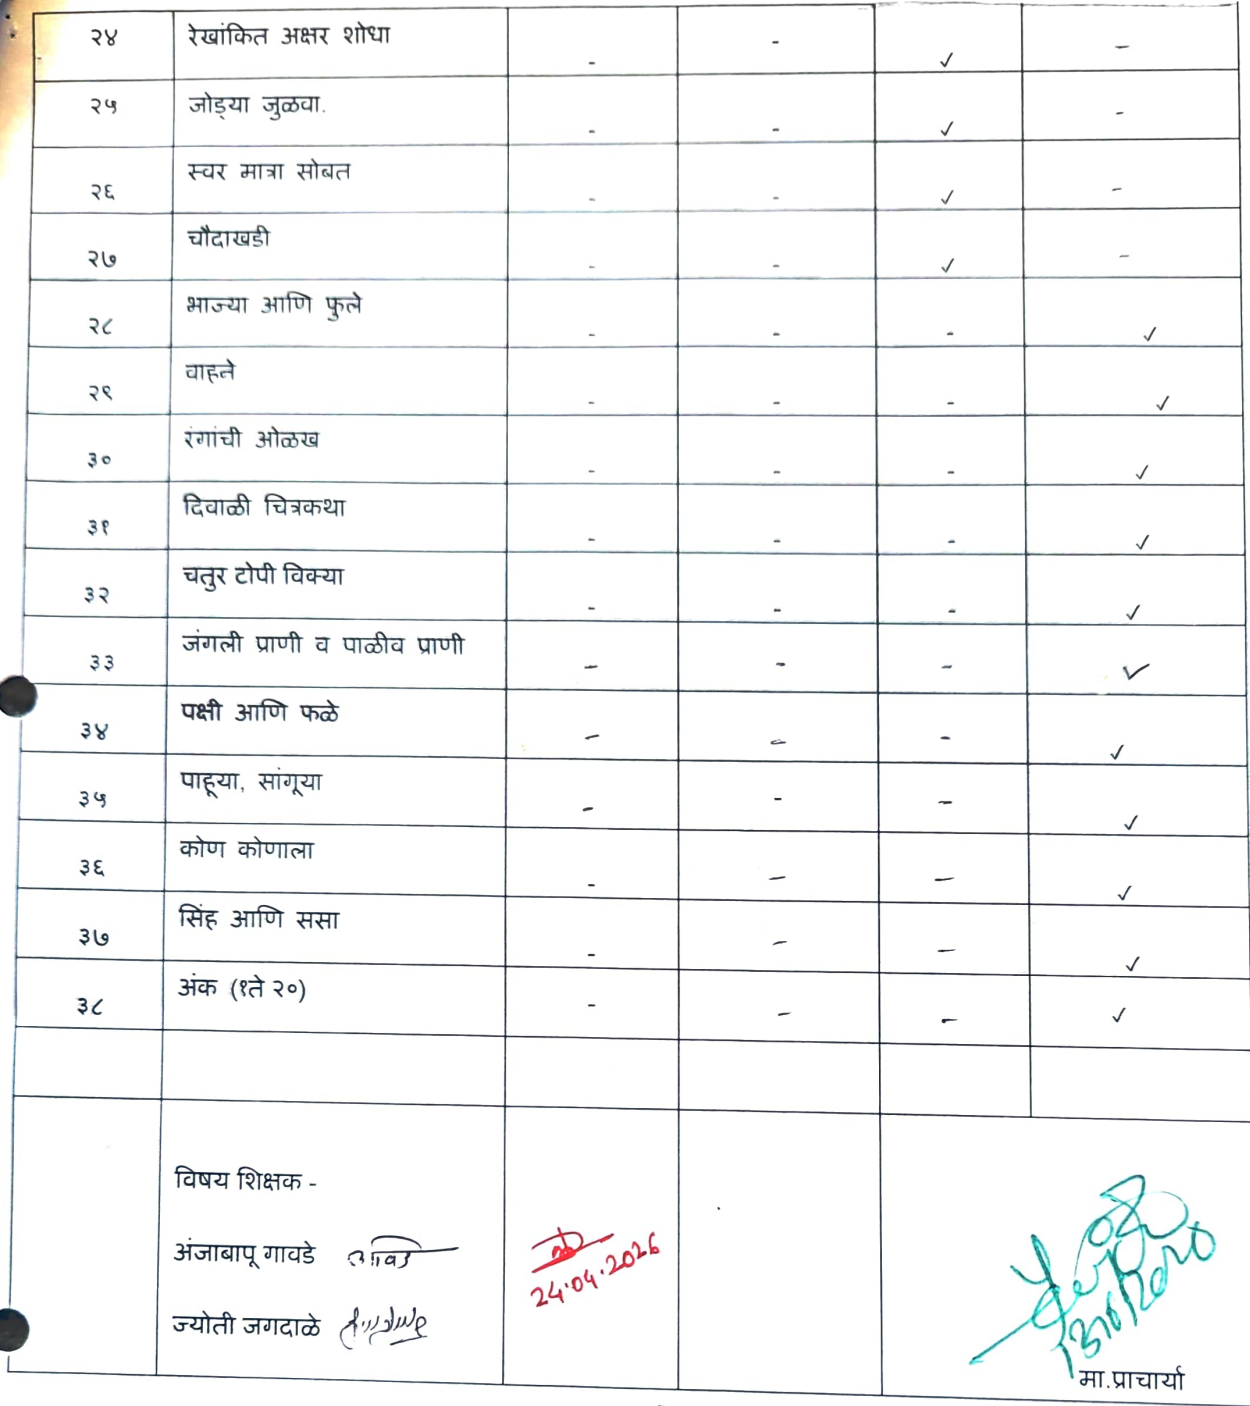 २४ रेखांकित अक्षर शोधा - - ✓ -
२५ जोड्या जुळवा. - - ✓ -
२६ स्वर मात्रा सोबत - - ✓ -
२७ चौदाखडी - - ✓ -
२८ भाज्या आणि फुले - - - ✓
२९ वाहने - - - ✓
३० रंगांची ओळख - - - ✓
३१ दिवाळी चित्रकथा - - - ✓
३२ चतुर टोपी विक्या - - - ✓
३३ जंगली प्राणी व पाळीव प्राणी - - - ✓
३४ पक्षी आणि फळे - - - ✓
३५ पाहूया, सांगूया - - - ✓
३६ कोण कोणाला - - - ✓
३७ सिंह आणि ससा - - - ✓
३८ अंक (१ते २०) - - - ✓
विषय शिक्षक -
अंजाबापू गावडे
24.04.2026
ज्योती जगदाळे
मा.प्राचार्या